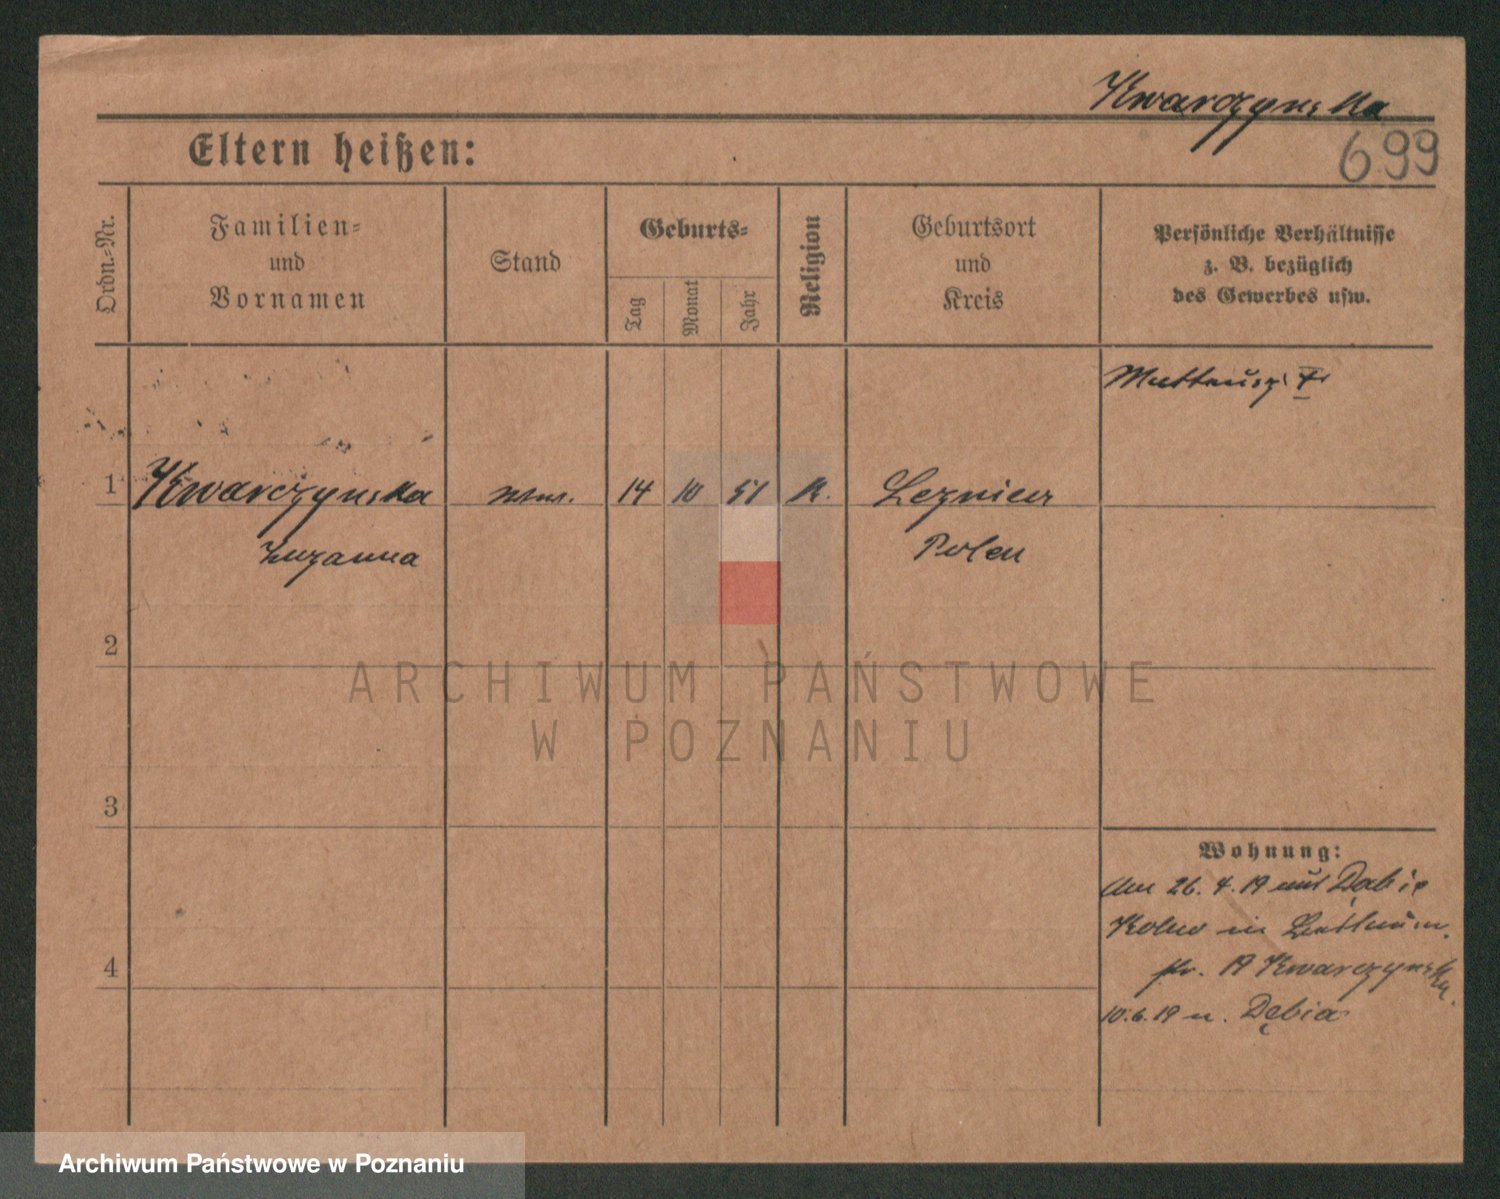 Kwarczynska
699
Eltern heißen:
Ordn.-Nr.
Familien-
und
Vornamen
Stand
Geburts-
Tag
Monat
Jahr
Religion
Geburtsort
und
Kreis
Persönliche Verhältnisse
z. B. bezüglich
des Gewerbes usw.
1
Kwarczynska
Zuzanna
14 10 51 K.
Polen
2
3
4
Wohnung:
Am 26. 4. 19 aus Dąbie
Kolno in
19 Kwarczynska
10.6.19 n. Dębia
ARCHIWUM PAŃSTWOWE
W POZNANIU
Archiwum Państwowe w Poznaniu